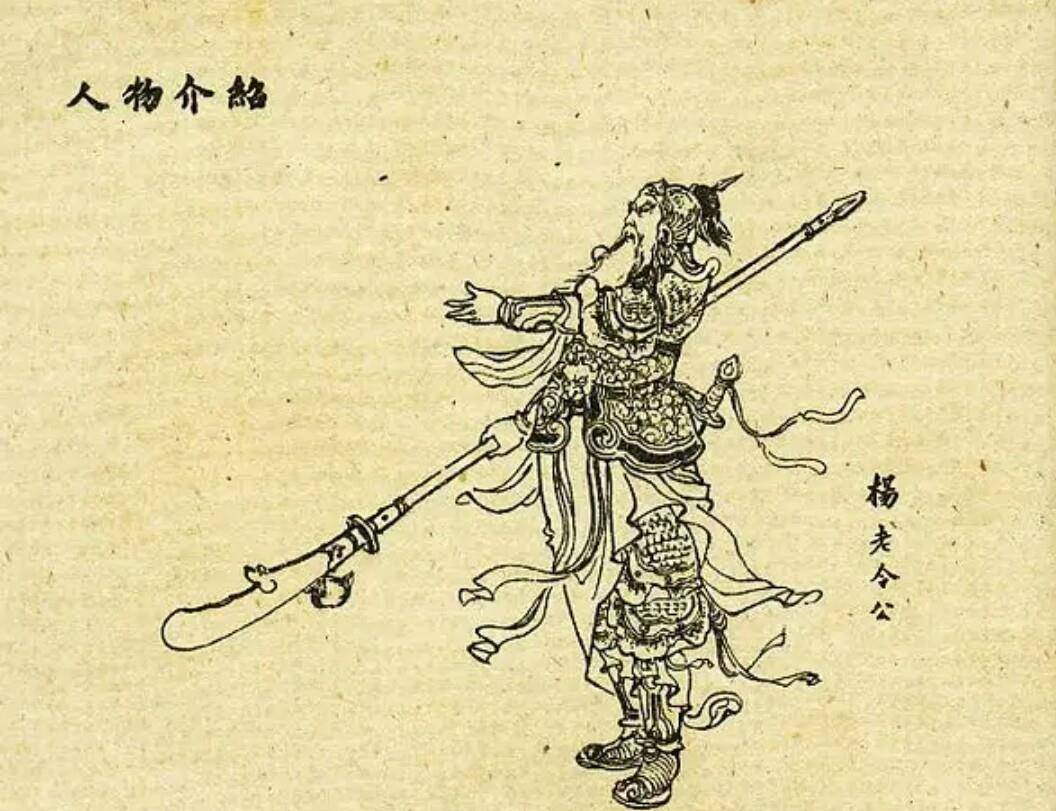 人物介紹
楊老令公